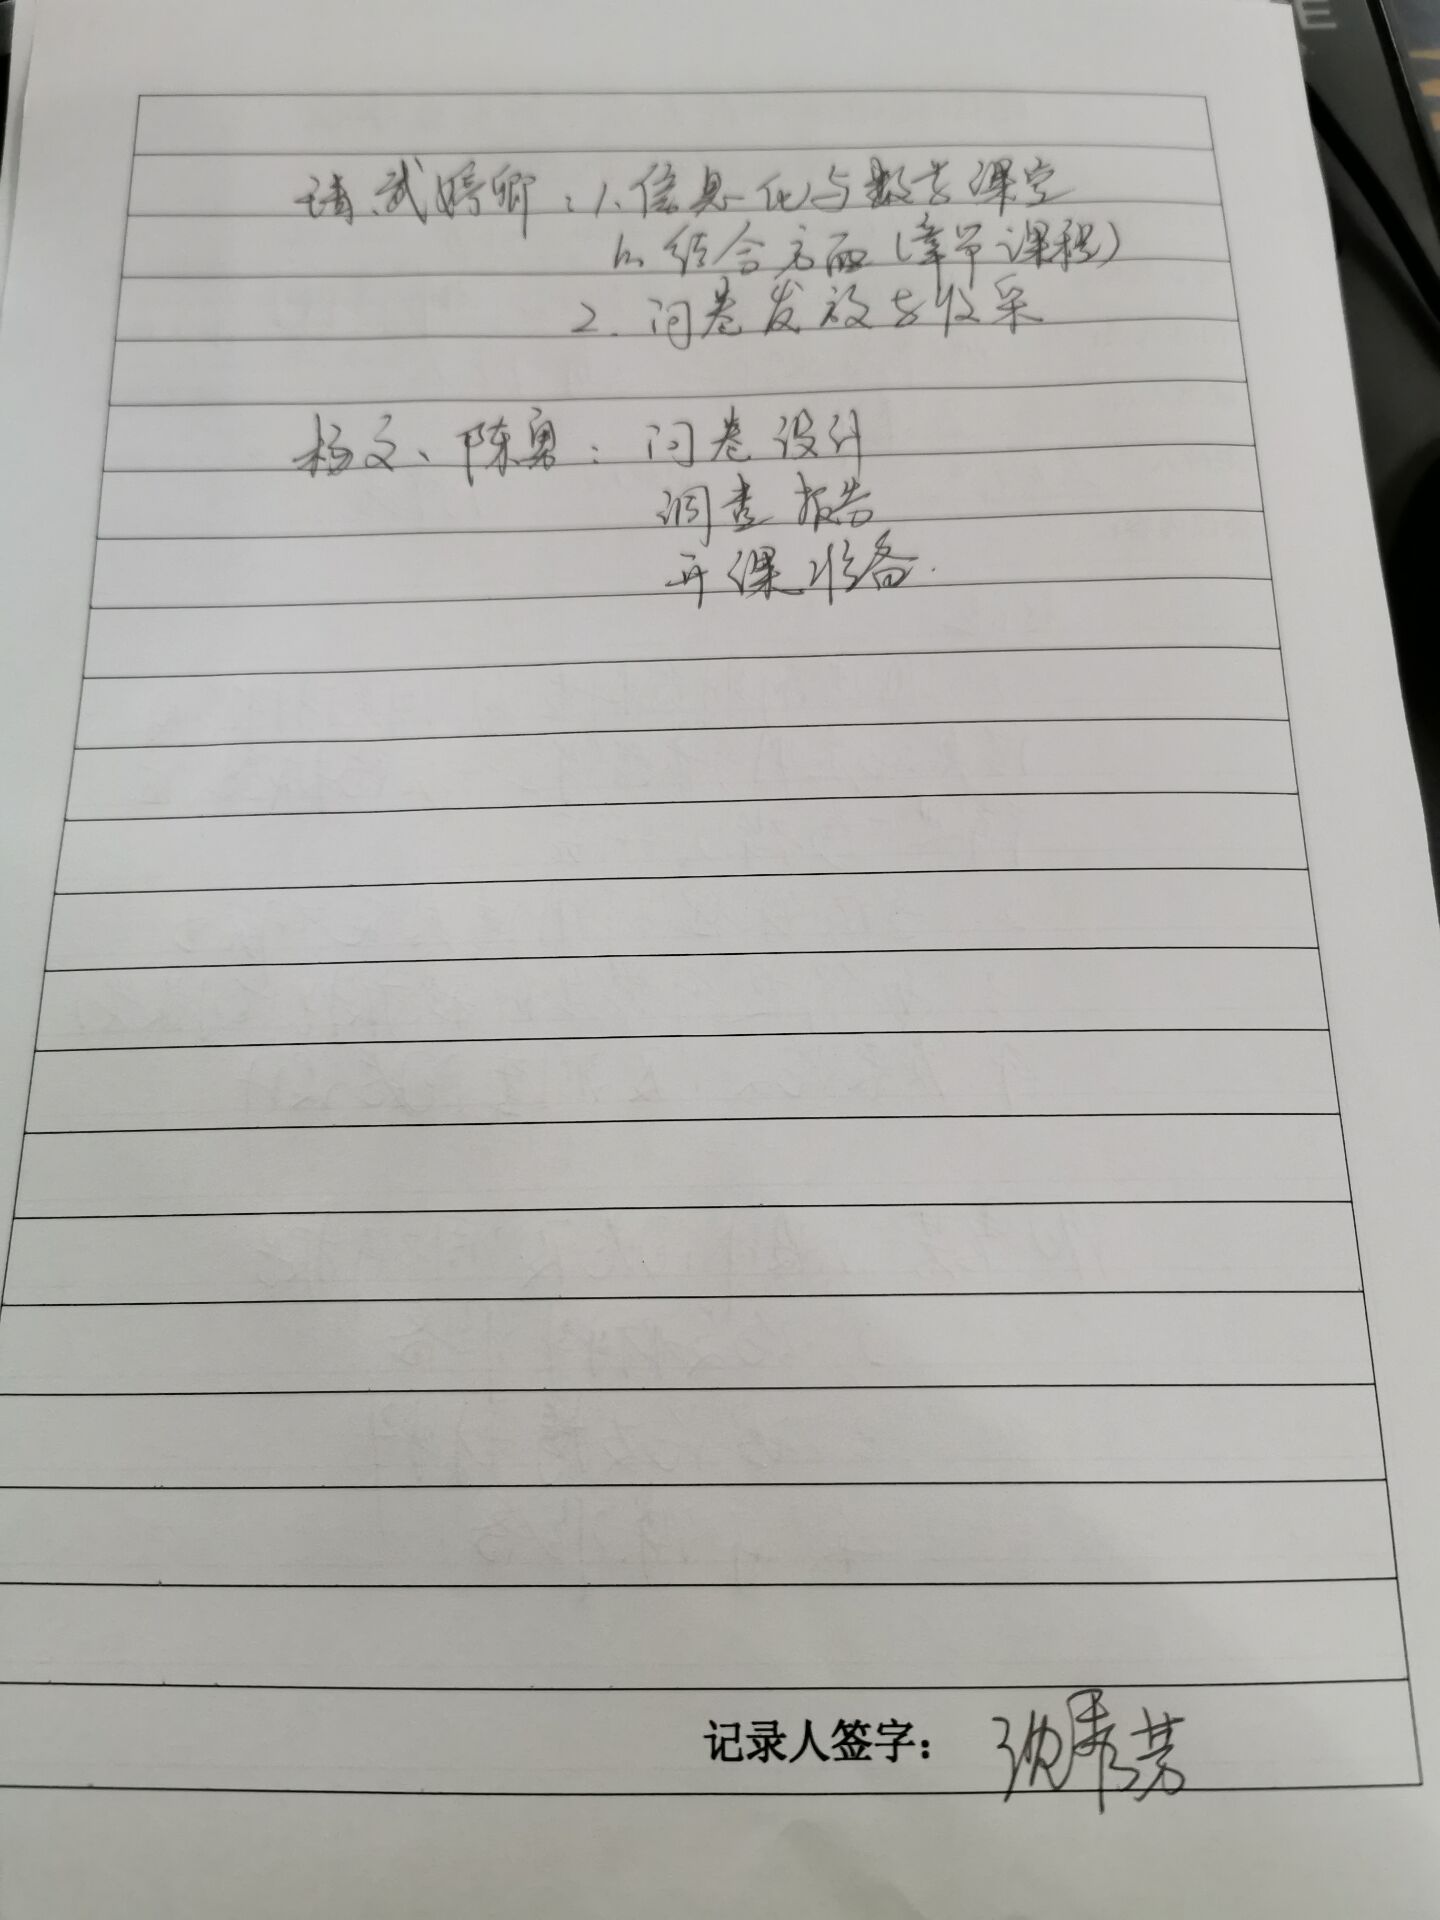 请武婷卿：1.信息化与数学课堂
的结合方面（章节课程）
2.问卷发放与收采
杨文、陈勇：问卷设计
调查报告
开课准备.
记录人签字：沈秀芳
E